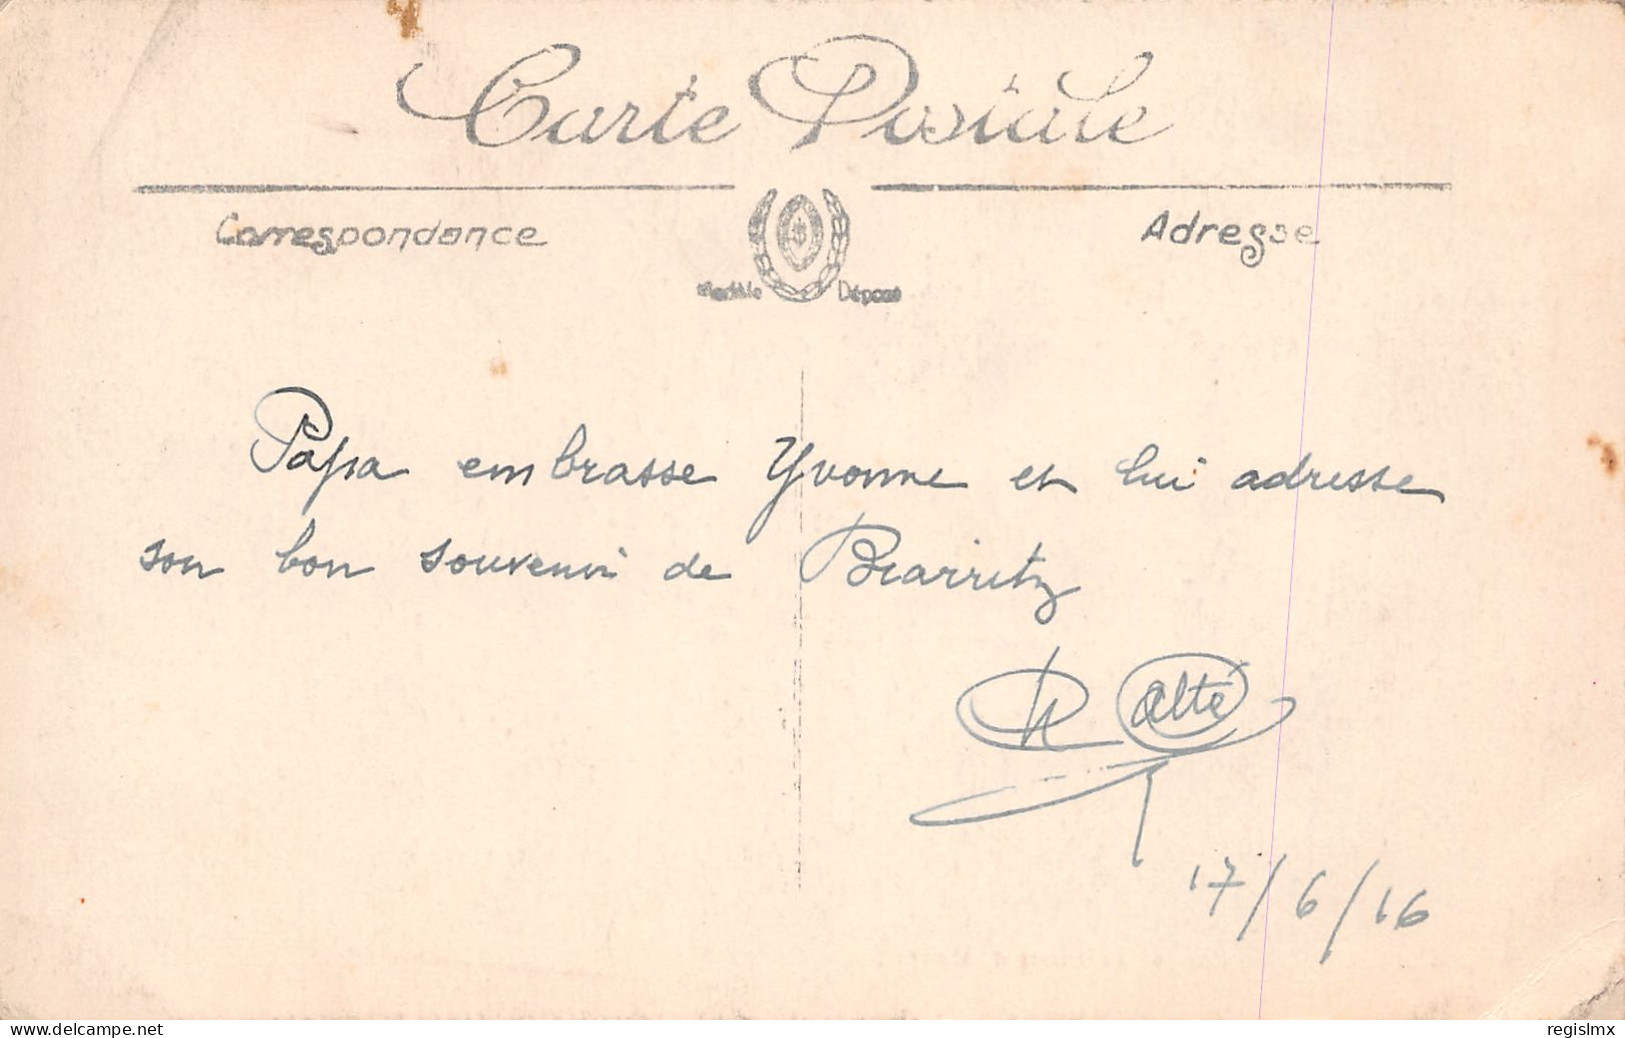 Carte Postale
Correspondance
Adresse
Modèle Déposé
Papa embrasse Yvonne et lui adresse
son bon souvenir de Biarritz
17/6/16
www.delcampe.net
regislmx